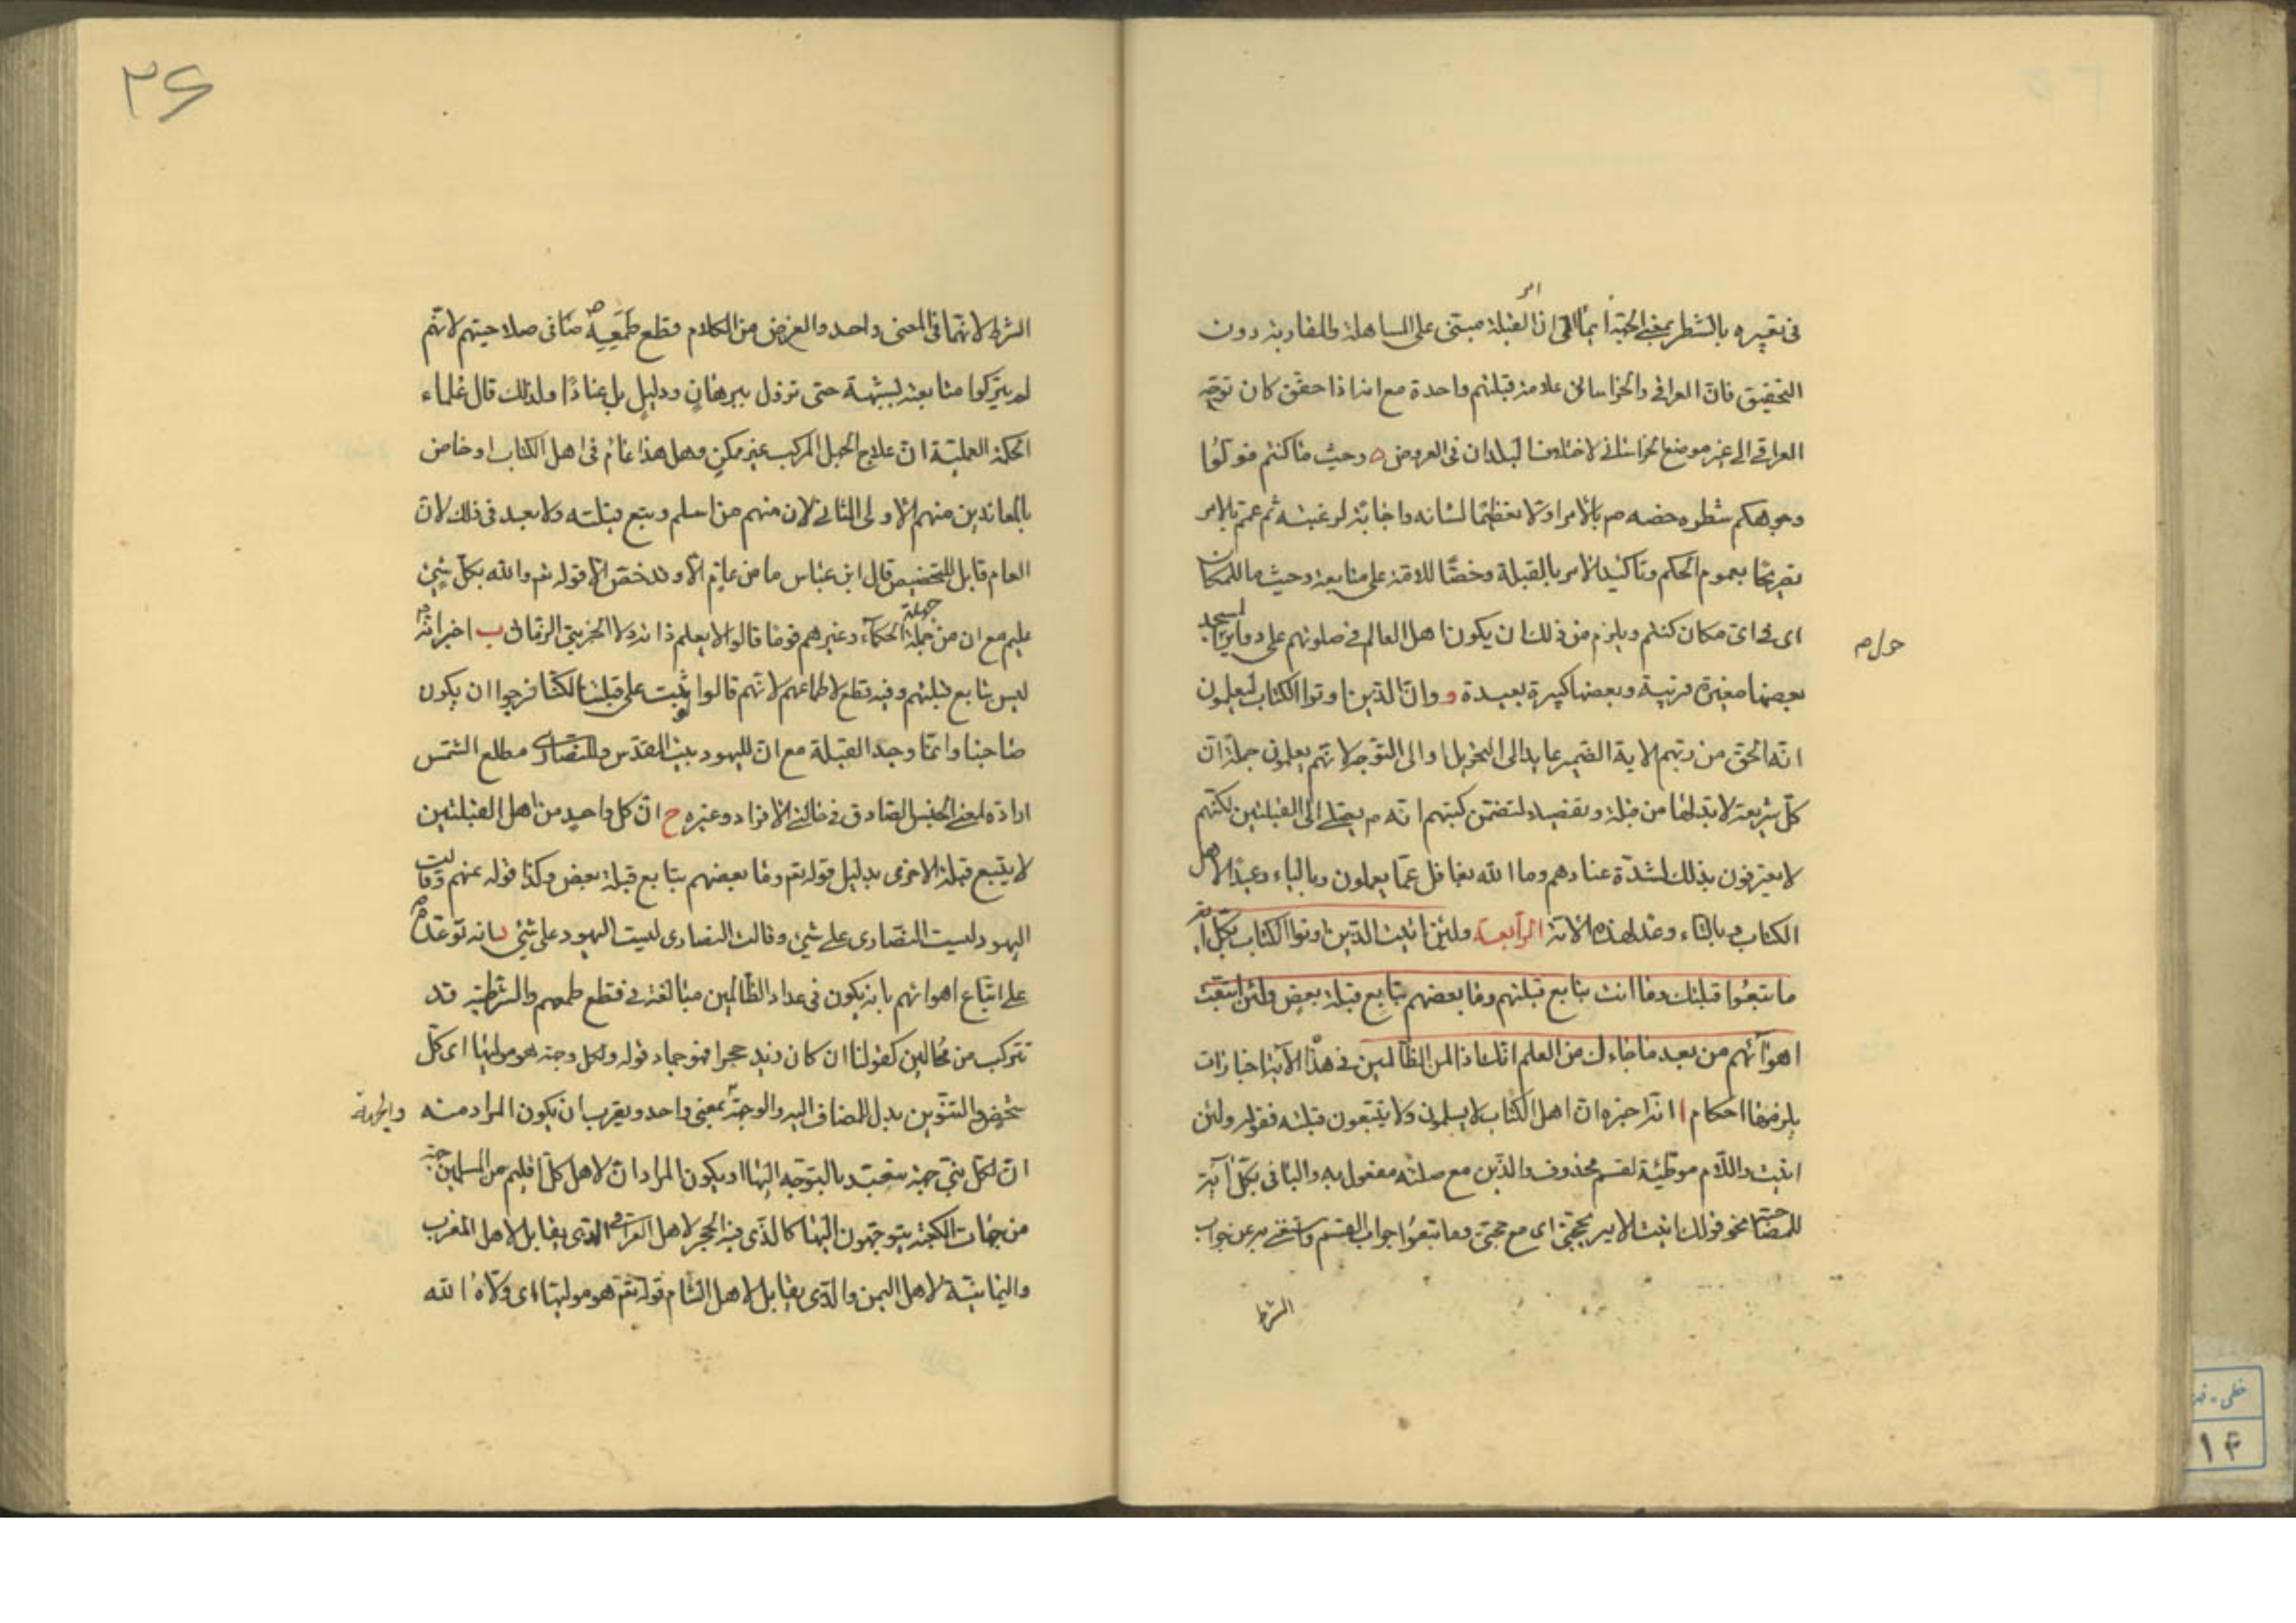 امر
فى تعبيره بالشطر بمعنى الجهة ايماءً الى ان القبلة مبنى على المساهلة والمقاربة دون
التحقيق فان العراقى والخراسانى علامة قبلتهم واحدة مع انه اذا حقق كان توجه
العراقى الى غير موضع الخراسانى لاختلاف البلدان فى العروض ه وحيث ما كنتم فولّوا
وجوهكم شطره خصه ص بالامر اولا تعظيما لشانه واجابة لرغبته ثم عمّم بالامر
تصريحا بعموم الحكم وتاكيدا لامر بالقبلة وحضّا للامة على متابعته وحيث ما للمكان
اى فى اى مكان كنتم ويلزم من ذلك ان يكون اهل العالم فى صلوتهم على دواير
المسجد
حول م
بعضها صغيرة قريبة وبعضها كبيرة بعيدة و وان الذين اوتوا الكتاب ليعلمون
انه الحق من ربهم الاية الضمير عايد الى التحويل او الى التوجه لانهم يعلمون جملة ان
كل شريعة لا بد لها من قبلة وتفصيلا لتضمن كتبهم انه ص يصلى الى القبلتين لكنهم
لا يعترفون بذلك لشدة عنادهم وما الله بغافل عما يعملون وبالياء وعيد لاهل
الكتاب وبالتاء وعد لهذه الامة الرابعة ولئن اتيت الذين اوتوا الكتاب بكل اية
ما تبعوا قبلتك وما انت بتابع قبلتهم وما بعضهم بتابع قبلة بعض ولئن اتبعت
اهوآئهم من بعد ما جاءك من العلم انك اذا لمن الظالمين فى هذه الآية اخبارات
يلزمها احكام ا انه اخبره ان اهل الكتاب لا يسلمون ولا يتبعون قبلته فقوله ولئن
اتيت واللام موطئة لقسم محذوف والذين مع صلته مفعول به والبا فى بكل آية
للمصاحبة نحو قولك اتيت الامير بحجتى اى مع حجتى وما تبعوا جواب القسم واستغنى به عن جواب
الشرط
۳۶
الشرط لانهما فى المعنى واحد والغرض من الكلام قطع طمعه ص فى صلاحيتهم لانهم
لم يتركوا متابعته لشبهة حتى تزول ببرهان ودليل بل عنادًا ولذلك قال علماء
الحكمة العملية ان علاج الجهل المركب غير ممكن وهل هذا عام فى اهل الكتاب او خاص
بالمعاندين منهم الاولى الثانى لان منهم من اسلم وتبع قبلته ولا بعد فى ذلك لان
العام قابل للتخصيص قال ابن عباس ما من عام الا وقد خص الا قوله تع والله بكل شئ
عليم مع ان من جملة جهلة الحكماء وغيرهم قوما قالوا لا يعلم ذاته ولا الجزئى الزمانى ب اخبر انه
ليس بتابع قبلتهم وفيه قطع لاطماعهم لانهم قالوا لو ثبت على قبلتنا لكنا نرجوا ان يكون
صاحبنا وانما وحد القبلة مع ان لليهود بيت المقدس وللنصارى مطلع الشمس
ارادة لمعنى الجنس الصادق فى حالتى الافراد وغيره ج ان كل واحد من اهل القبلتين
لا يتبع قبلة الاخرى بدليل قوله تع وما بعضهم بتابع قبلة بعض وكذا قوله عنهم وقالت
اليهود ليست النصارى على شئ وقالت النصارى ليست اليهود على شئ د انه توعده
على اتباع اهوائهم بانه يكون فى عداد الظالمين مبالغة فى قطع طمعهم والشرطية قد
تتركب من محالين كقولنا ان كان زيد حجرا فهو جماد قوله ولكل وجهة هو موليها اى كل
شخص والتنوين بدل المضاف اليه والوجهة والجهة بمعنى واحد ويقرب ان يكون المراد منه
ان لكل نبى جهة يتعبد بالتوجه اليها او يكون المراد ان لاهل كل اقليم من المسلمين جهة
من جهات الكعبة يتوجهون اليها كالذى فيه الحجر لاهل العراق والذى يقابل لاهل المغرب
واليمانية لاهل اليمن والذى يقابل لاهل الشام قوله تع هو موليها اى ولاه الله
خطى
۱۴